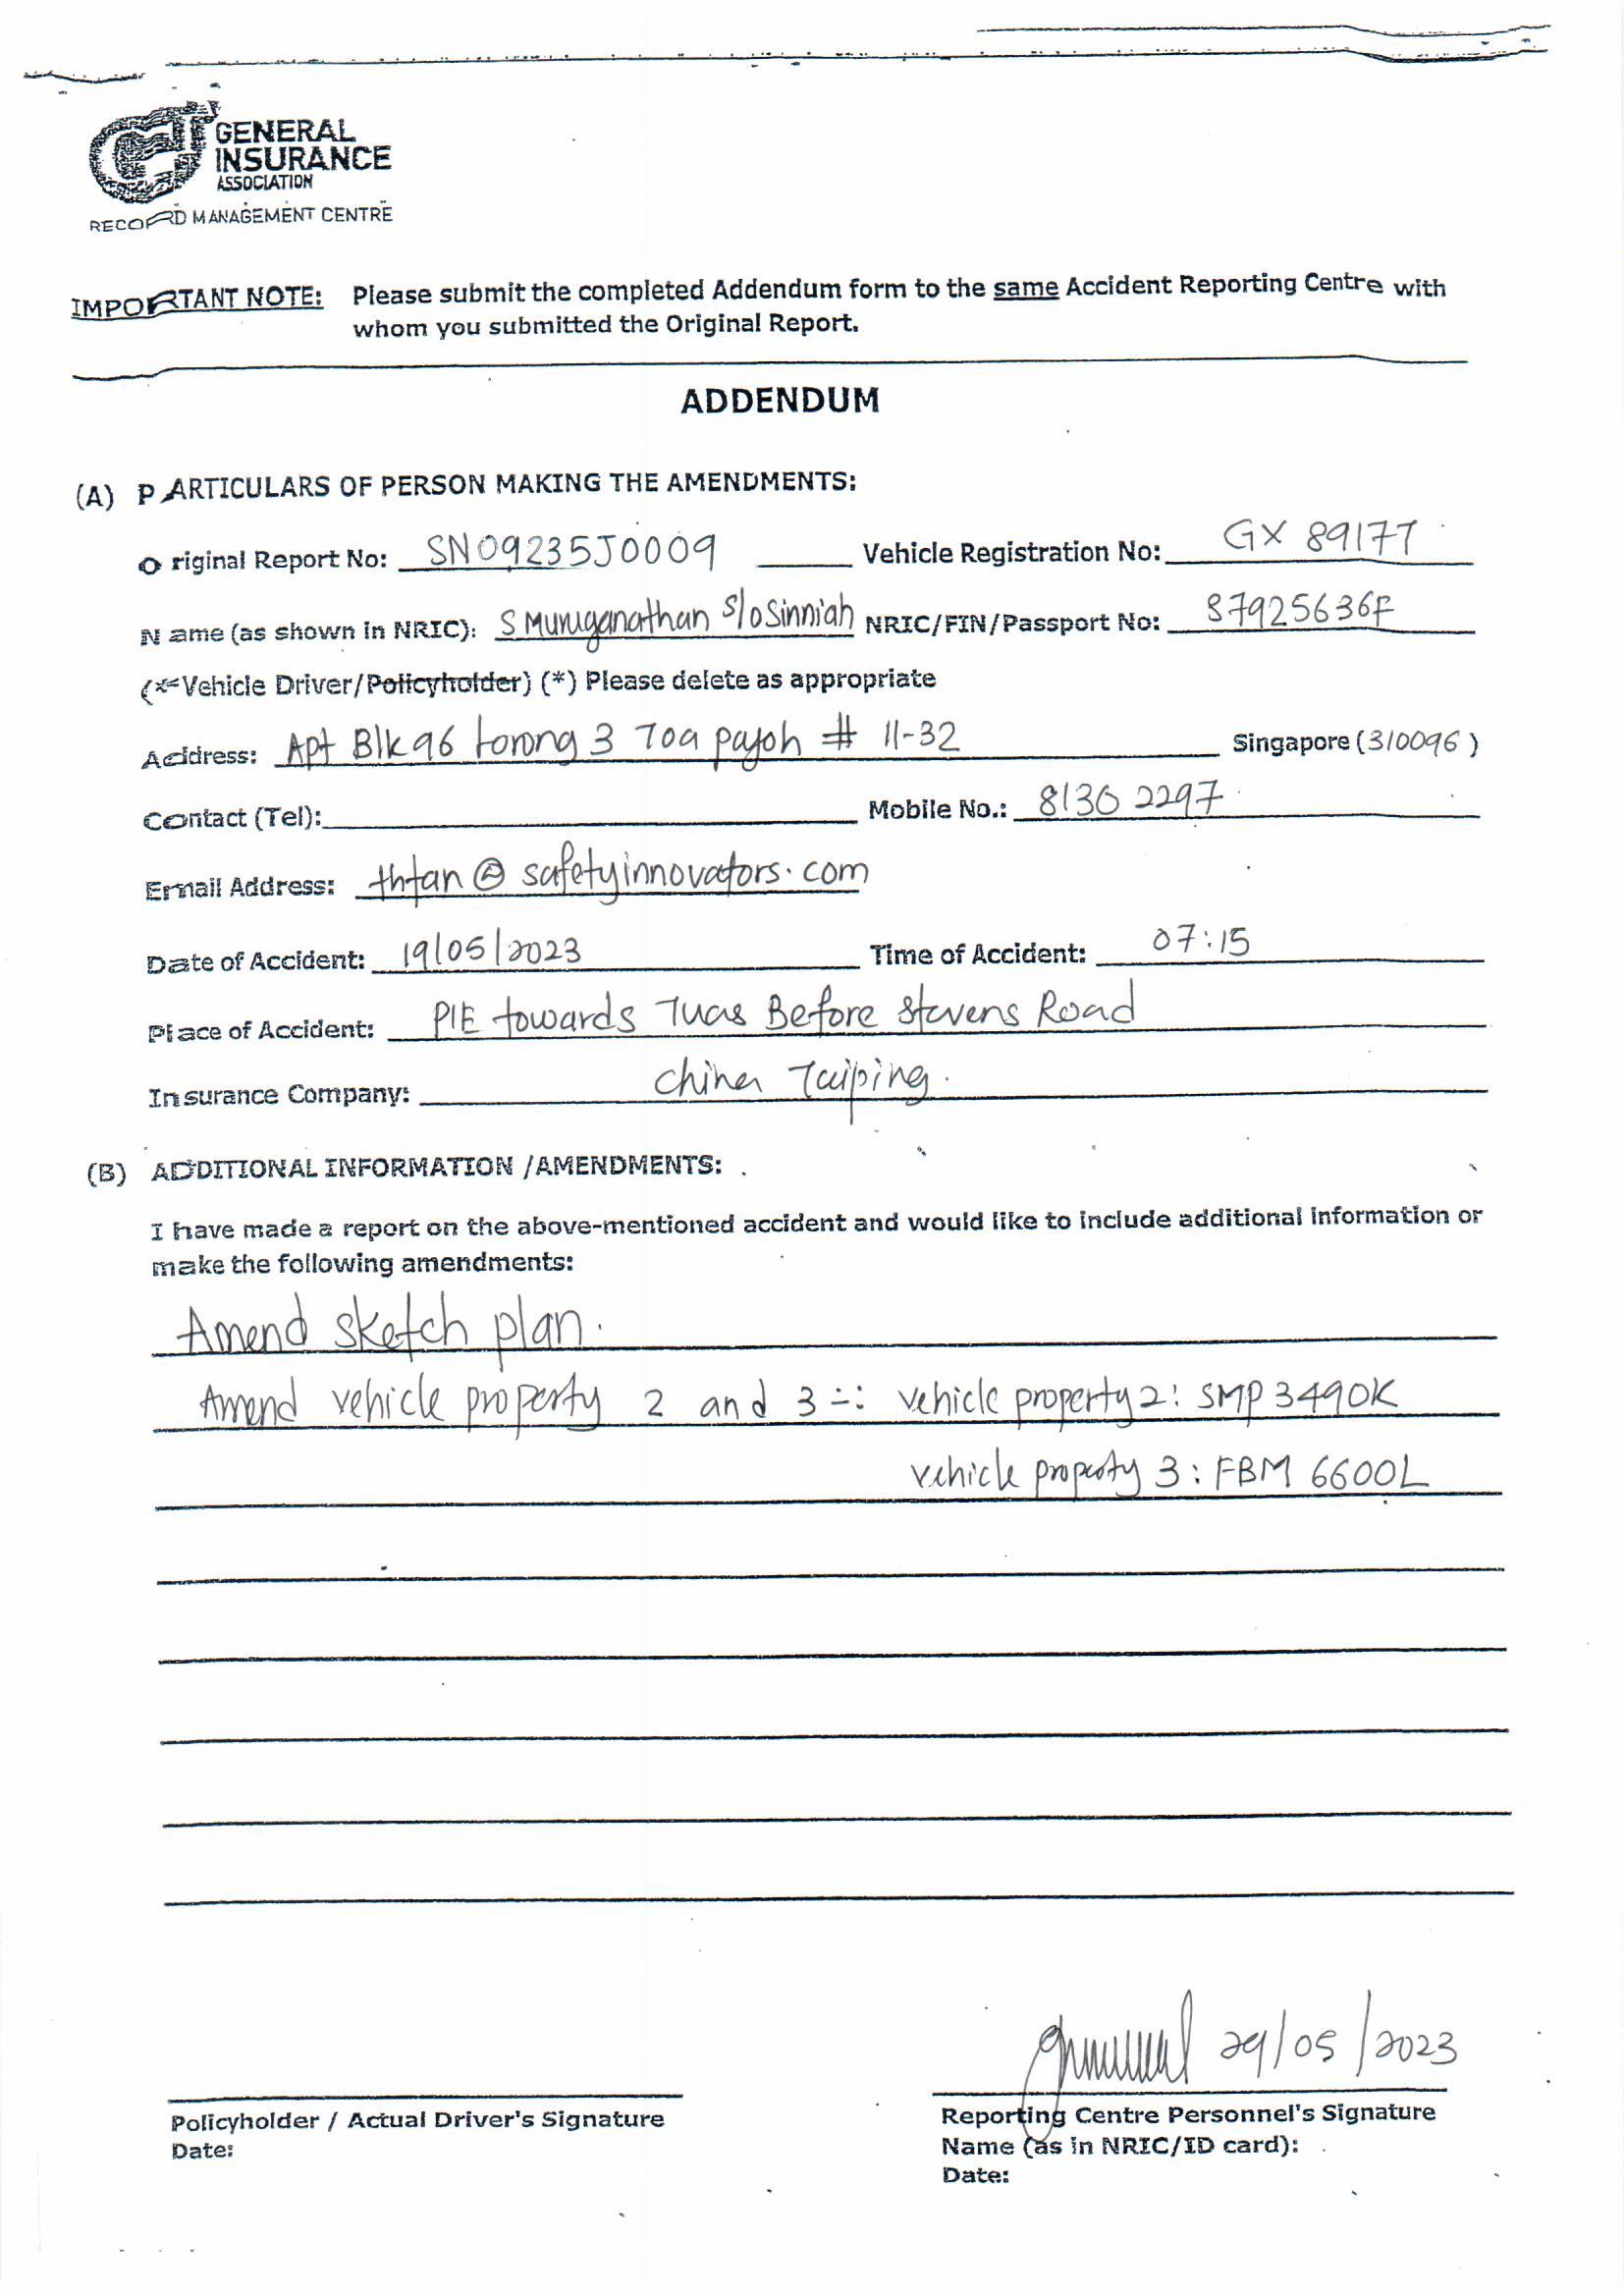 GENERAL
INSURANCE
ASSOCIATION
RECORD MANAGEMENT CENTRE
IMPORTANT NOTE: Please submit the completed Addendum form to the same Accident Reporting Centre with
whom you submitted the Original Report.
ADDENDUM
(A) PARTICULARS OF PERSON MAKING THE AMENDMENTS:
Original Report No: SN09235J0009 Vehicle Registration No: GX 8917T
Name (as shown in NRIC): S Muruganathan S/o Sinniah NRIC/FIN/Passport No: S7925636F
(*Vehicle Driver/Policyholder) (*) Please delete as appropriate
Address: Apt Blk 96 Lorong 3 Toa payoh # 11-32 Singapore (310096)
Contact (Tel): Mobile No.: 8130 2297
Email Address: thtan@safetyinnovators.com
Date of Accident: 19/05/2023 Time of Accident: 07:15
Place of Accident: PIE towards Tuas Before Stevens Road
Insurance Company: China Taiping.
(B) ADDITIONAL INFORMATION /AMENDMENTS:
I have made a report on the above-mentioned accident and would like to include additional information or
make the following amendments:
Amend sketch plan.
Amend vehicle property 2 and 3 -: vehicle property 2: SMP 3490K
vehicle property 3: FBM 6600L
29/05/2023
Policyholder / Actual Driver's Signature
Date:
Reporting Centre Personnel's Signature
Name (as in NRIC/ID card):
Date: